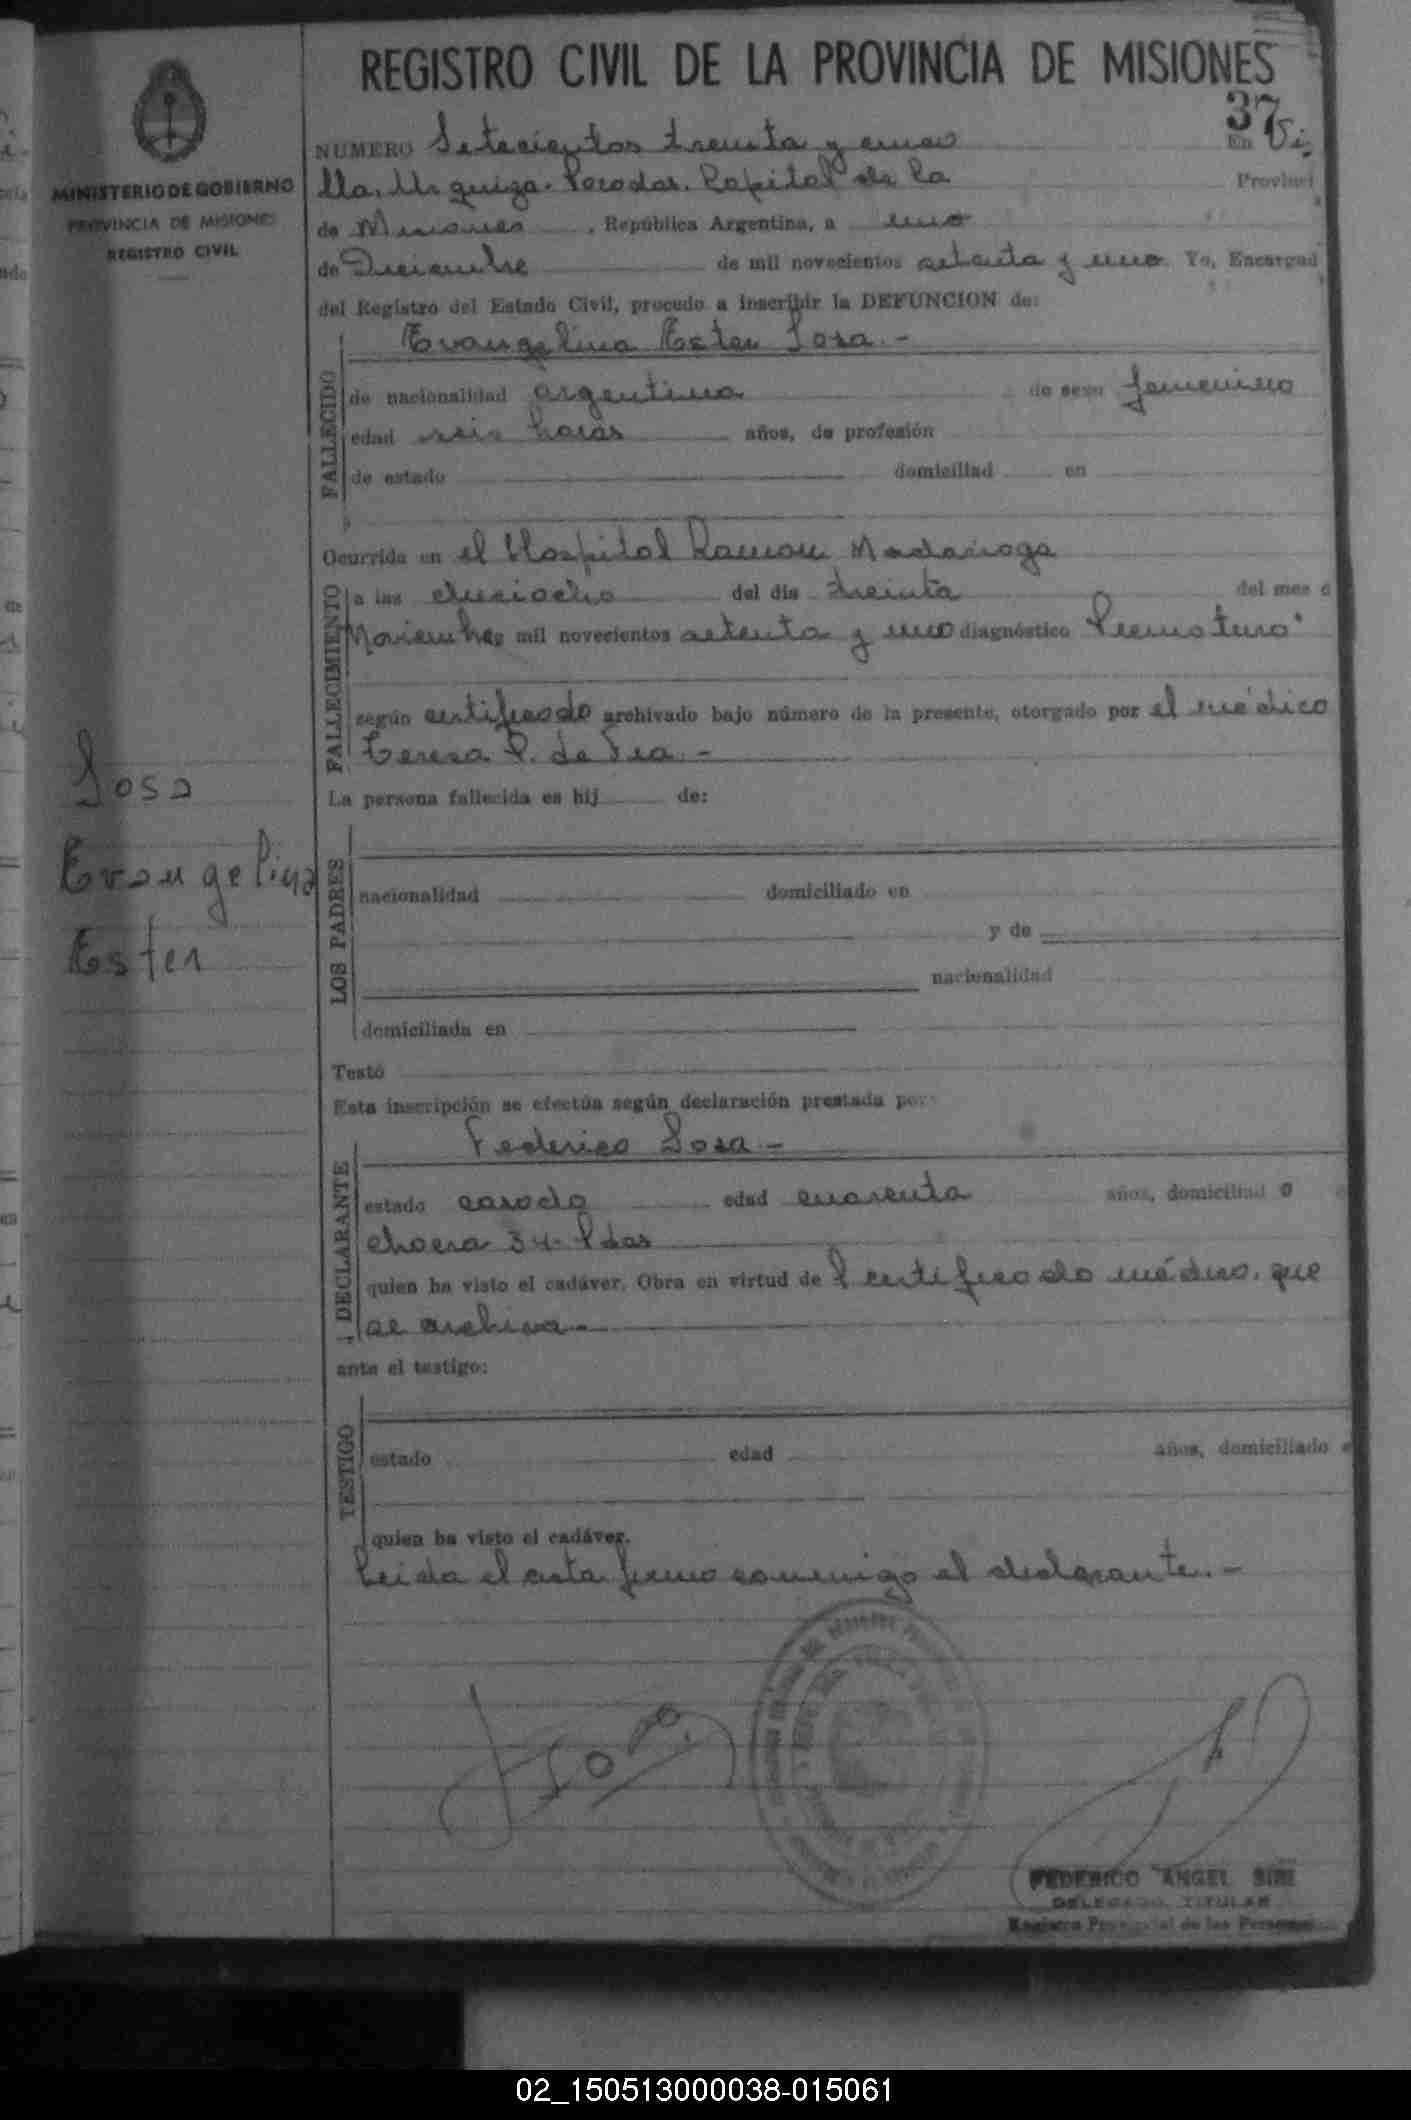 REGISTRO CIVIL DE LA PROVINCIA DE MISIONES
37
MINISTERIO DE GOBIERNO
PROVINCIA DE MISIONES
REGISTRO CIVIL
NUMERO Setecientos treinta y cinco En Vi
lla Urquiza. Posadas. Capital de la Provinci
de Misiones , República Argentina, a uno
de Diciembre de mil novecientos setenta y uno Yo, Encargad
del Registro del Estado Civil, procedo a inscribir la DEFUNCION de:
FALLECIDO
Evangelina Ester Sosa.-
de nacionalidad argentina de sexo femenino
edad seis horas años, de profesión
de estado domiciliad en
Ocurrida en el Hospital Ramon Madariaga
FALLECIMIENTO
a las dieciocho del dia treinta del mes d
Noviembre mil novecientos setenta y uno diagnóstico Prematuro
según certificado archivado bajo número de la presente, otorgado por el médico
Teresa P. de
La persona fallecida es hij de:
Sosa
Evangelina
Ester
LOS PADRES
nacionalidad domiciliado en
y de
nacionalidad
domiciliada en
Testó
Esta inscripción se efectúa según declaración prestada por:
DECLARANTE
Federico Sosa.-
estado casado edad cuarenta años, domiciliad o e
chacra 34- Pdas
quien ha visto el cadáver. Obra en virtud de l certificado médico, que
se archiva.-
ante el testigo:
TESTIGO
estado edad años, domiciliado e
quien ha visto el cadáver.
Leida el acta firma conmigo el declarante.-
Sosa
FEDERICO ANGEL SIRI
DELEGADO TITULAR
Registro Provincial de las Personas
02_150513000038-015061